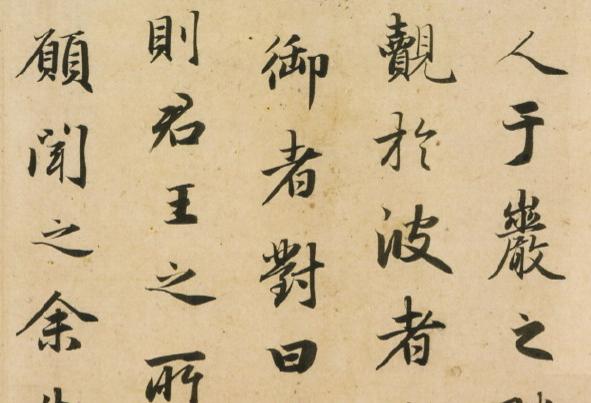 人于巖之
覿於彼者
御者對曰
則君王之所
願聞之余